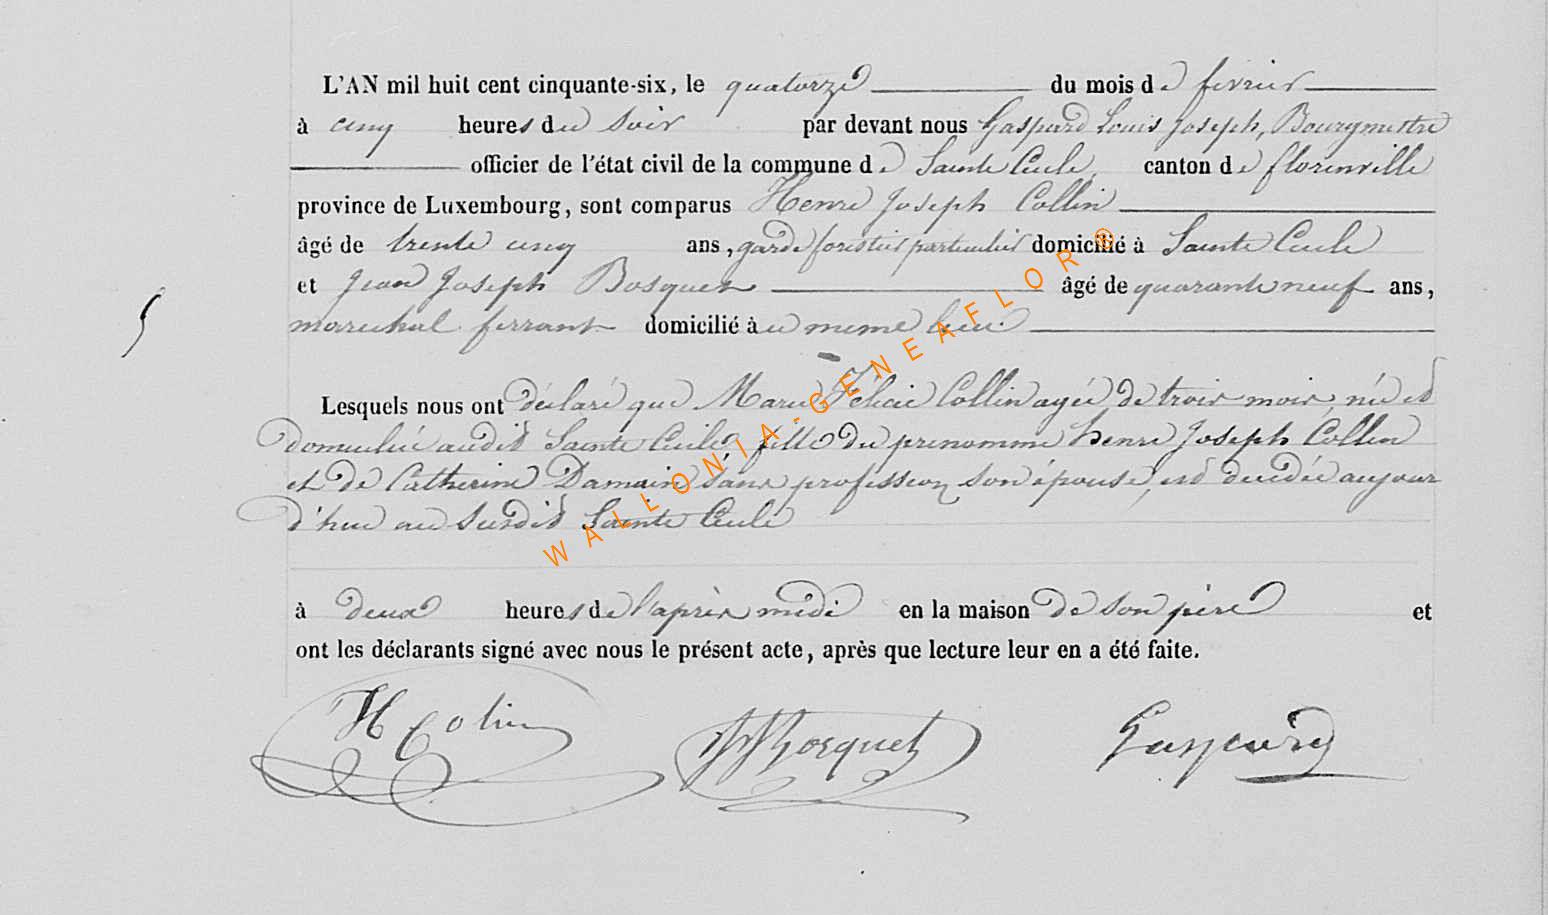 L'AN mil huit cent cinquante-six, le quatorze du mois de fevrier
à cinq heures du soir par devant nous Gaspard Louis Joseph, Bourgmestre
officier de l'état civil de la commune de Sainte Cecile, canton de florenville
province de Luxembourg, sont comparus Henri Joseph Collin
âgé de trente cinq ans, garde forestier particulier domicilié à Sainte Cecile
et Jean Joseph Bosquet âgé de quarante neuf ans,
5
marechal ferrant domicilié au meme lieu.
Lesquels nous ont déclaré que Marie Félicie Collin agée de trois mois, née et
domiciliée audit Sainte Cecile, fille du prenommé henri Joseph Collin
et de Catherine Damain sans profession son épouse, est decedée aujour
d'hui au susdit Sainte Cecile
à deux heures de l'après midi en la maison de son père et
ont les déclarants signé avec nous le présent acte, après que lecture leur en a été faite.
H Colin JJ Bosquet Gaspard
WALLONIA-GENEAFLOR®